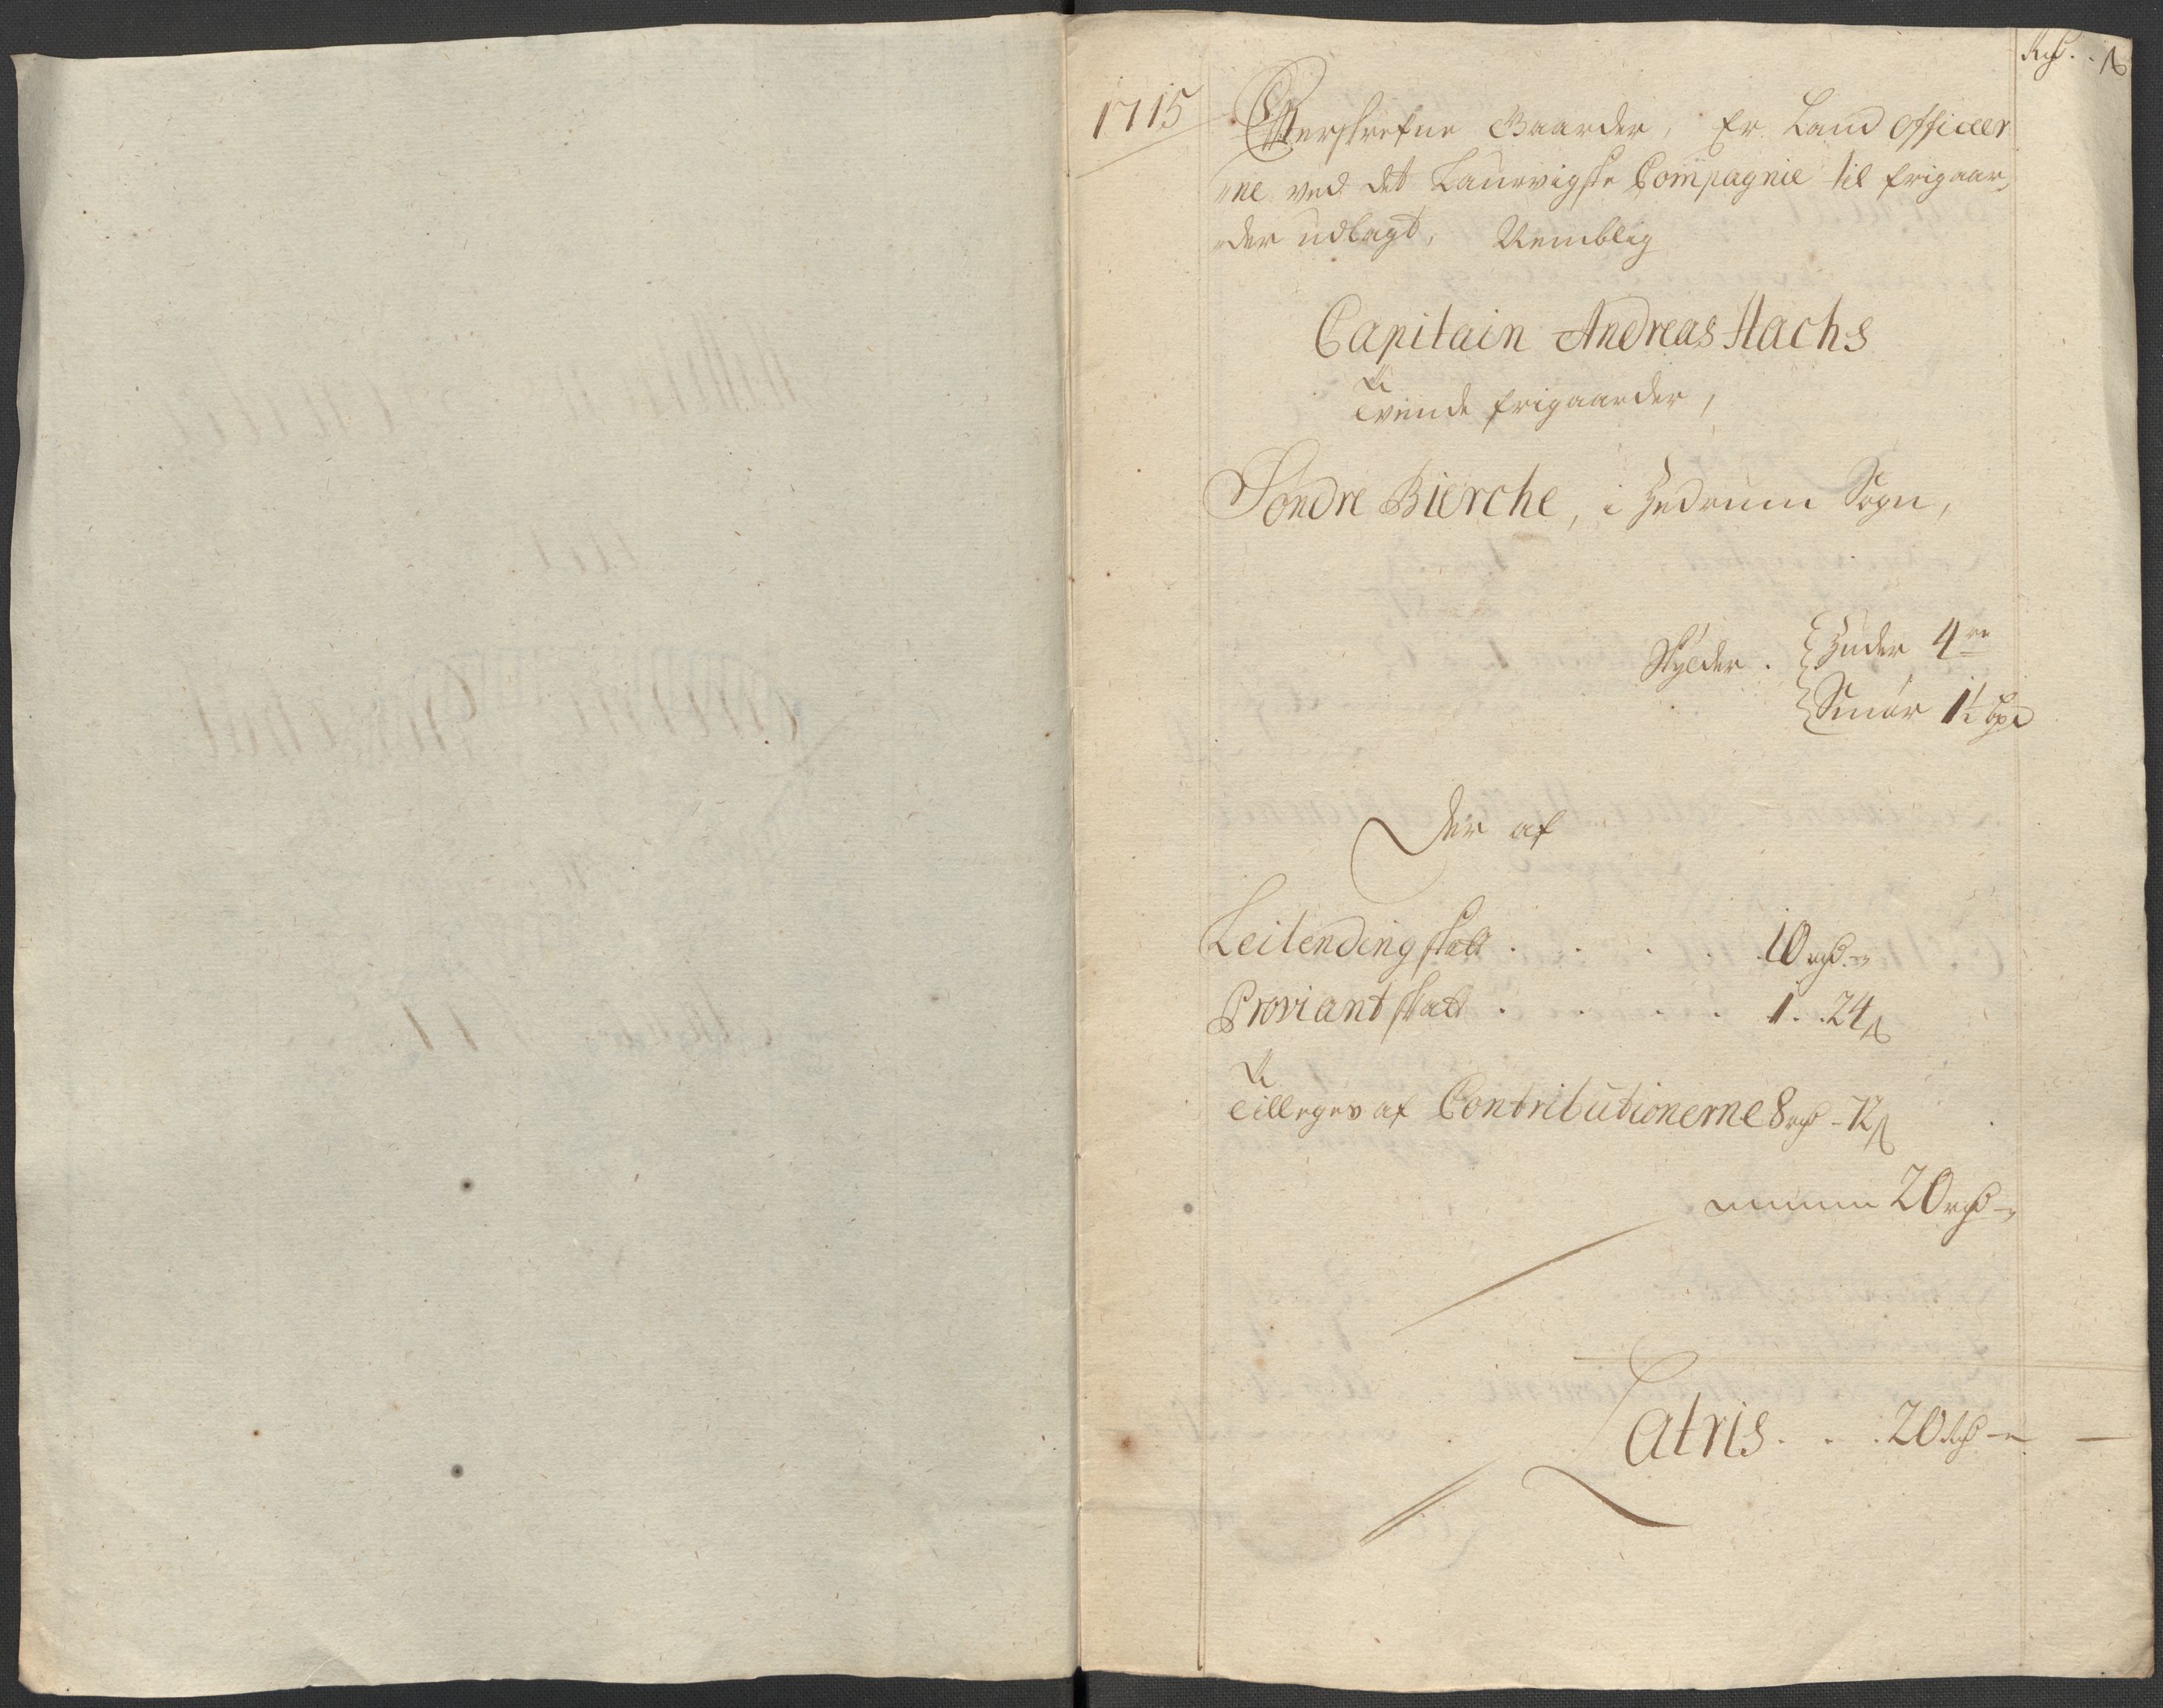 Rdr. ß
1715
Efterskrefne Gaarder, Er Land Officer
ne ved det Laurvigske Compagnie til frigaar,
der udlagt, Nemblig
Capitain Andreas Hachs
Tvende frigaarder,
Søndre Bierche, i Hedrum Sogn,
Skylder. Huder 4re
Smør 1½ Bpd
Der af
Leilending skatt . . . . 10 rdr. -
Proviant skatt . . . . 1. . 24 ß
Tilleges af Contributionerne 8 rdr - 72 ß
20 rdr -
Latris. . . 20 rdr - —